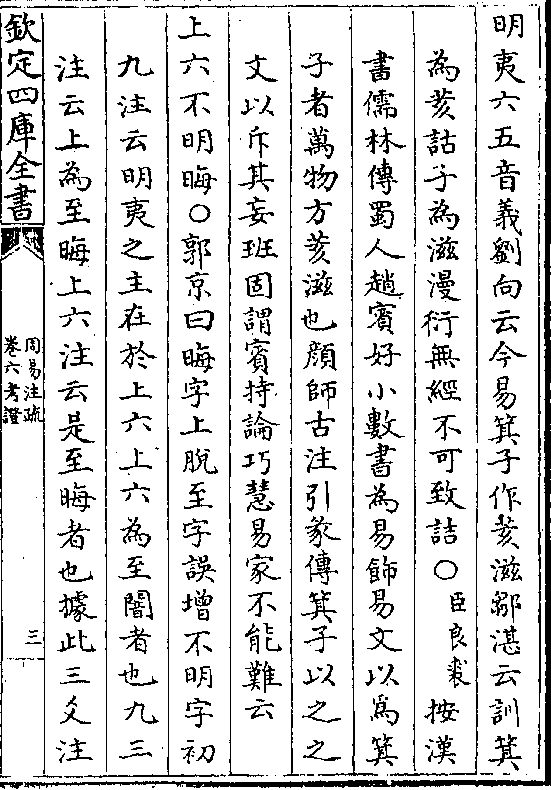 明夷六五音義劉向云今易箕子作荄滋鄒湛云訓箕
為荄詁子為滋漫衍無經不可致詰○臣良裘按漢
書儒林傳蜀人趙賓好小數書為易飾易文以為箕
子者萬物方荄滋也顔師古注引彖傳箕子以之之
文以斥其妄班固謂賓持論巧慧易家不能難云
上六不明晦○郭京曰晦字上脫至字誤增不明字初
九注云明夷之主在於上六上六為至闇者也九三
注云上為至晦上六注云是至晦者也據此三爻注
欽定四庫全書
周易注疏
卷六考證
三